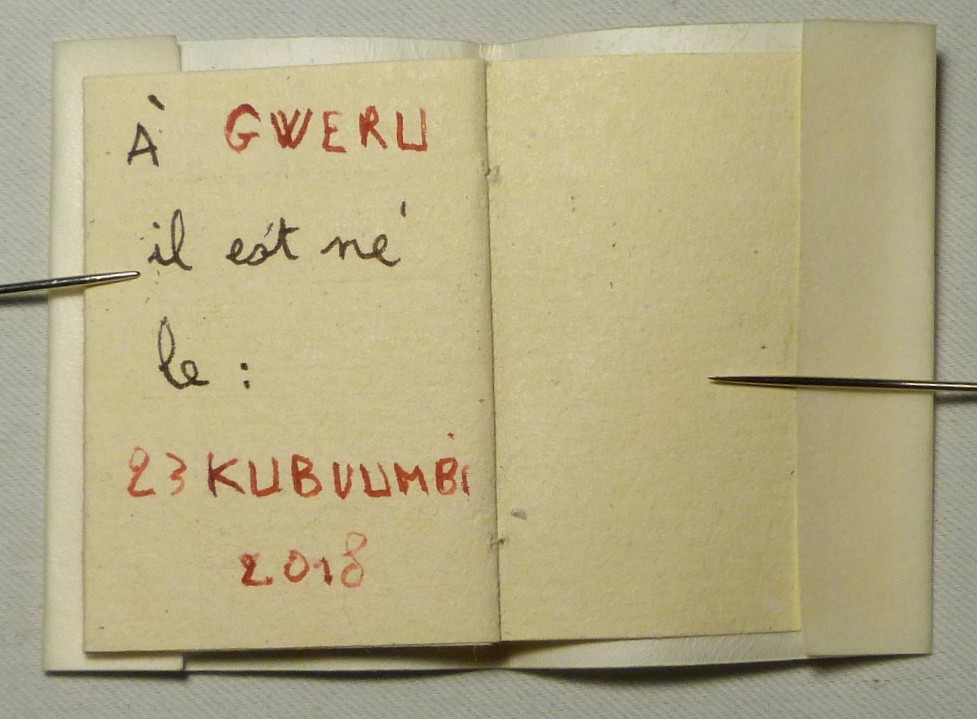 À GWERU
il est né
le :
23 KUBVUMBI
2018